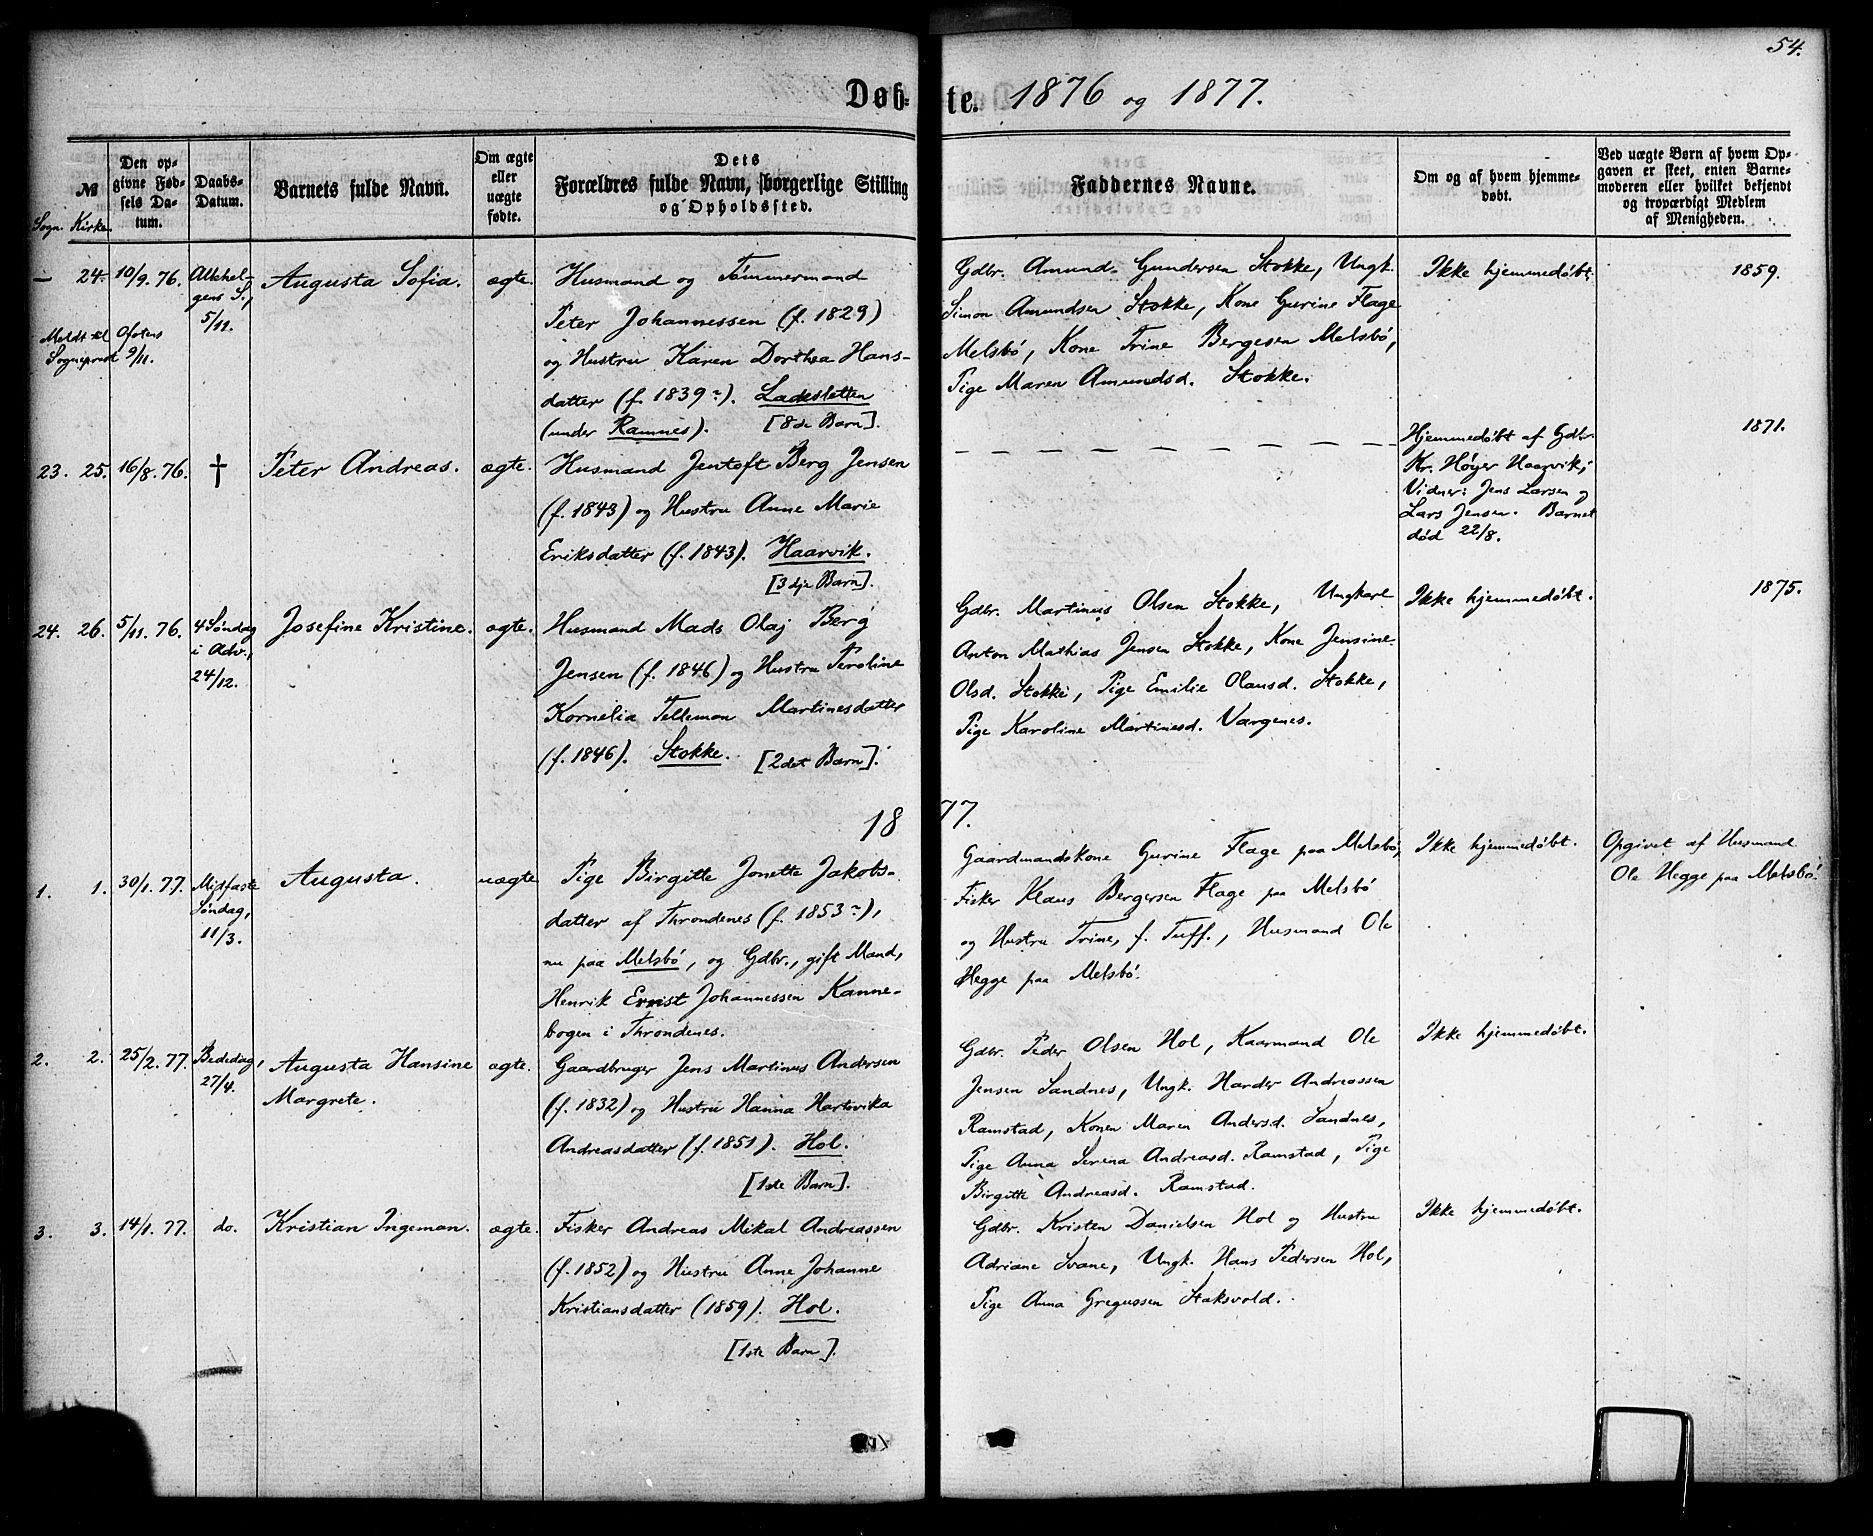 54.
Døb-te. 1876 og 1877.
№
Sogn. Kirke.
Den op-
givne Fød-
sels Da-
tum.
Daabs-
Datum.
Barnets fulde Navn.
Om ægte
eller
uægte
fødte.
Dets
Forældres fulde Navn, borgerlige Stilling
og Opholdssted.
Faddernes Navne.
Om og af hvem hjemme-
døbt.
Ved uægte Børn af hvem Op-
gaven er skeet, enten Barne-
moderen eller hvilket bekjendt
og troværdigt Medlem
af Menigheden.
— 24. 10/9. 76. Allehel-
gens S.,
5/11.
Meldt til Ofotens
Sogneprest 9/11.
Augusta Sofia.
ægte.
Husmand og Tømmermand
Peter Johannessen (f. 1829)
og Hustru Karen Dorthea Hans-
datter (f. 1839?). Ladesletten
(under Ramnes). [8de Barn].
Gdbr. Amund Gundersen Stokke, Ungk.
Simon Amundsen Stokke, Kone Gurine Flage
Melsbö, Kone Trine Bergesen Melsbö,
Pige Maren Amundsd. Stokke.
Ikke hjemmedøbt.
1859.
23. 25. 16/8. 76. †
Peter Andreas.
ægte.
Husmand Jentoft Berg Jensen
(f. 1843) og Hustru Anne Marie
Eriksdatter (f. 1843). Haarvik.
[3dje Barn].
— — — — — — — — — —
Hjemmedøbt af Gdbr.
Kr. Høyer Haarvik;
Vidner: Jens Larsen og
Lars Jensen. Barnet
död 22/8.
1871.
24. 26. 5/11. 76. 4 Søndag
i Adv.,
24/12.
Josefine Kristine.
ægte.
Husmand Mads Olaj Berg
Jensen (f. 1846) og Hustru Peroline
Kornelia Telleman Martinesdatter
(f. 1846). Stokke. [2det Barn].
Gdbr. Martinus Olsen Stokke, Ungkarl
Anton Mathias Jensen Stokke, Kone Jensine
Olsd. Stokke, Pige Emilie Olausd. Stokke,
Pige Karoline Martinesd. Vargenes.
Ikke hjemmedøbt.
1875.
1877.
1. 1. 30/1. 77. Midfaste
Søndag,
11/3.
Augusta.
uægte
Pige Birgitte Jonette Jakobs-
datter af Throndenes (f. 1853?),
nu paa Melsbö, og Gdbr., gift Mand,
Henrik Ernst Johannessen Kanne-
bogen i Throndenes.
Gaardmandskone Gurine Flage paa Melsbö,
Fisker Klaus Bergersen Flage paa Melsbö
og Hustru Trine, f. Tuff., Husmand Ole
Hegge paa Melsbö.
Ikke hjemmedøbt.
Opgivet af Husmand
Ole Hegge paa Melsbö.
2. 2. 25/2. 77. Bededag,
27/4.
Augusta Hansine
Margrete.
ægte.
Gaardbruger Jens Martinus Andersen
(f. 1832) og Hustru Hanna Hartvika
Andreasdatter (f. 1851). Hol.
[1ste Barn].
Gdbr. Peder Olsen Hol, Kaarmand Ole
Jensen Sandnes, Ungk. Harder Andreassen
Ramstad, Konen Maren Andersd. Sandnes,
Pige Anna Serena Andreasd. Ramstad, Pige
Birgitte Andreasd. Ramstad.
Ikke hjemmedøbt.
3. 3. 14/1. 77. do.
Kristian Ingeman.
ægte.
Fisker Andreas Mikal Andreassen
(f. 1852) og Hustru Anne Johanne
Kristiansdatter (1859). Hol.
[1ste Barn].
Gdbr. Kristen Danielsen Hol og Hustru
Adriane Svane, Ungk. Hans Pedersen Hol,
Pige Anna Gregussen Staksvold.
Ikke hjemmedøbt.